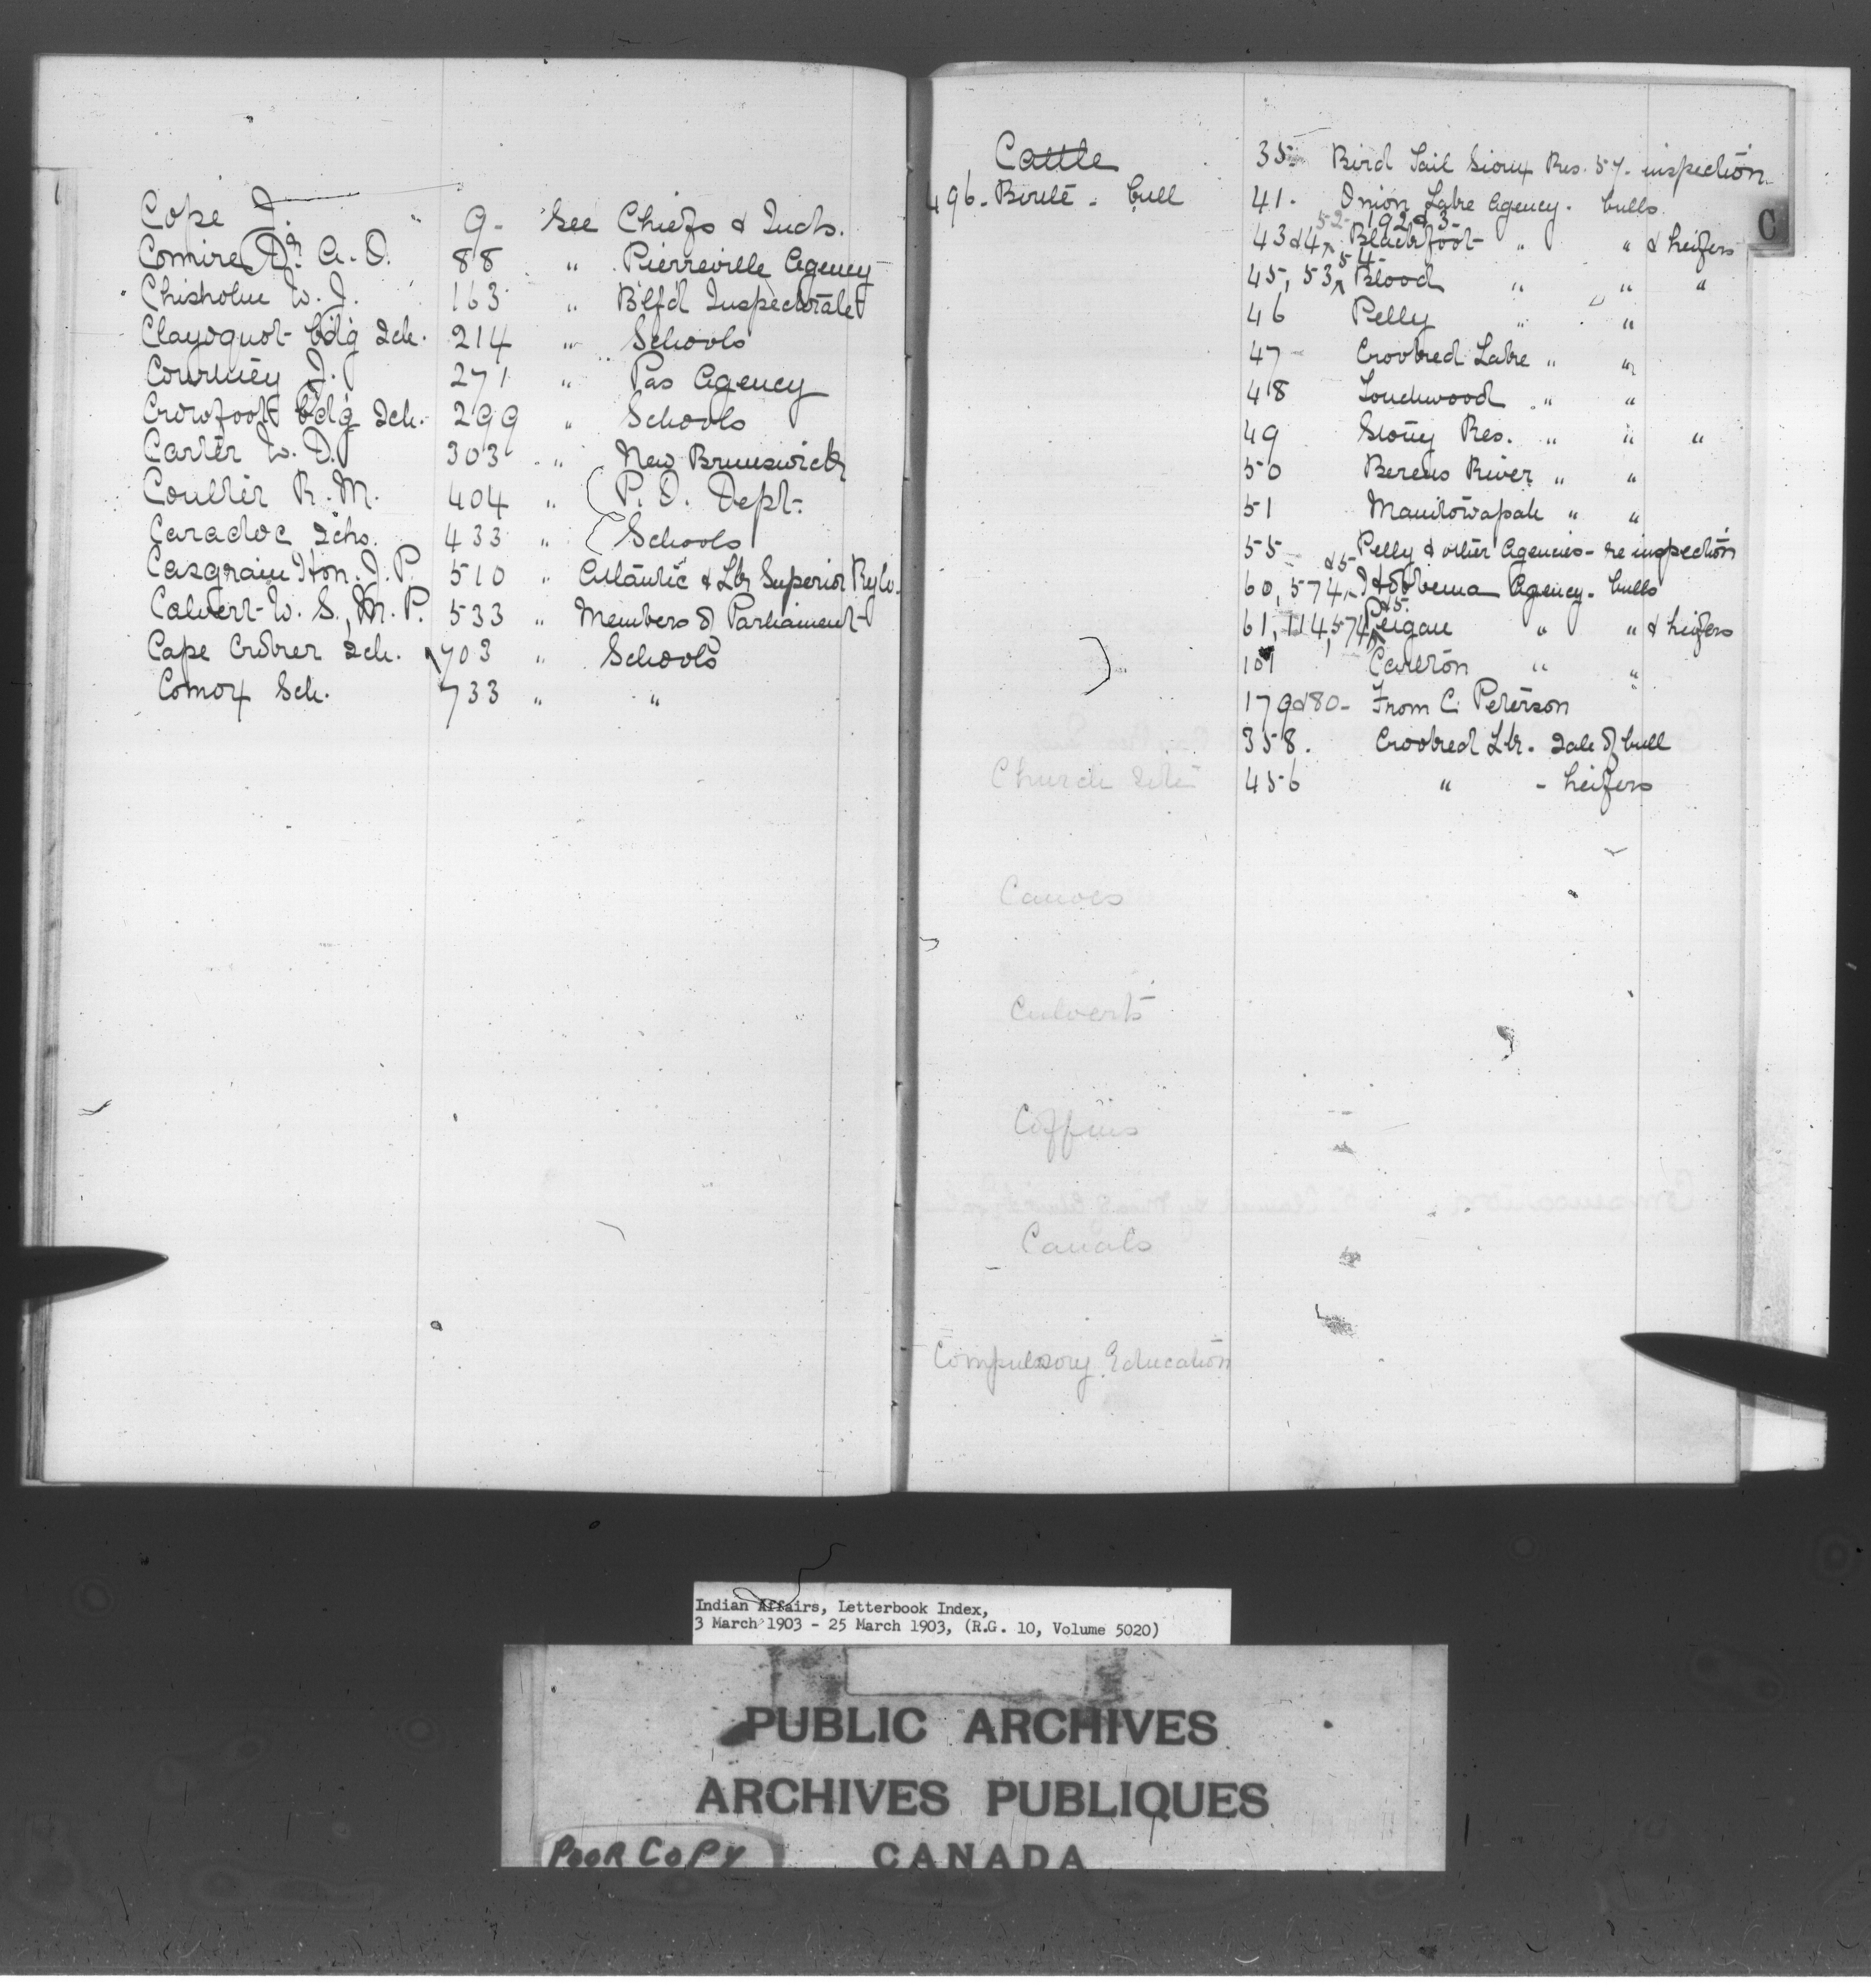 Cope J. 9 - See Chiefs & Inds.
Comire Dr. A. O. 88 " Pierreville Agency
Chisholm W. J. 163 " B'lf'd Inspectorate
Clayoquot Bdg Sch. 214 " Schools
Courtney J. 271 " Pas Agency
Crowfoot Bdg Sch. 299 " Schools
Carter W. D. 303 " New Brunswick
Coulter R. M. 404 " P. O. Dept.
Caradoc Schs. 433 " Schools
Casgrain Hon. J. P. 510 " Atlantic & Lk Superior Ryw.
Calvert W. S., M. P. 533 " Members of Parliament
Cape Croker Sch. 703 " Schools
Comox Sch. 733 " "
Cattle 35 - Bird Tail Sioux Res. 57 - inspection
496 - Birtle - bull 41 - Onion Lake Agency - bulls
52 - 192 & 3
43 & 4, Blackfoot " " & heifers
54 -
45, 53, Blood " " "
46 Pelly " "
47 - Crooked Lake " "
48 Touchwood " "
49 Stony Res. " " "
50 Berens River " "
51 Manitowapah " "
55 - Pelly & other Agencies - re inspection
& 5 -
60, 574, Hobbema Agency - bulls
& 5.
61, 114, 574, Peigan " " & heifers
101 Carlton " "
179 & 80 - From C. Peterson
358 . Crooked Lk. - Sale of bull
456 " - heifers
C
Church Site
Canoes
Culverts
Coffins
Canals
Compulsory Education
Indian Affairs, Letterbook Index,
3 March 1903 - 25 March 1903, (R.G. 10, Volume 5020)
PUBLIC ARCHIVES
ARCHIVES PUBLIQUES
POOR COPY CANADA